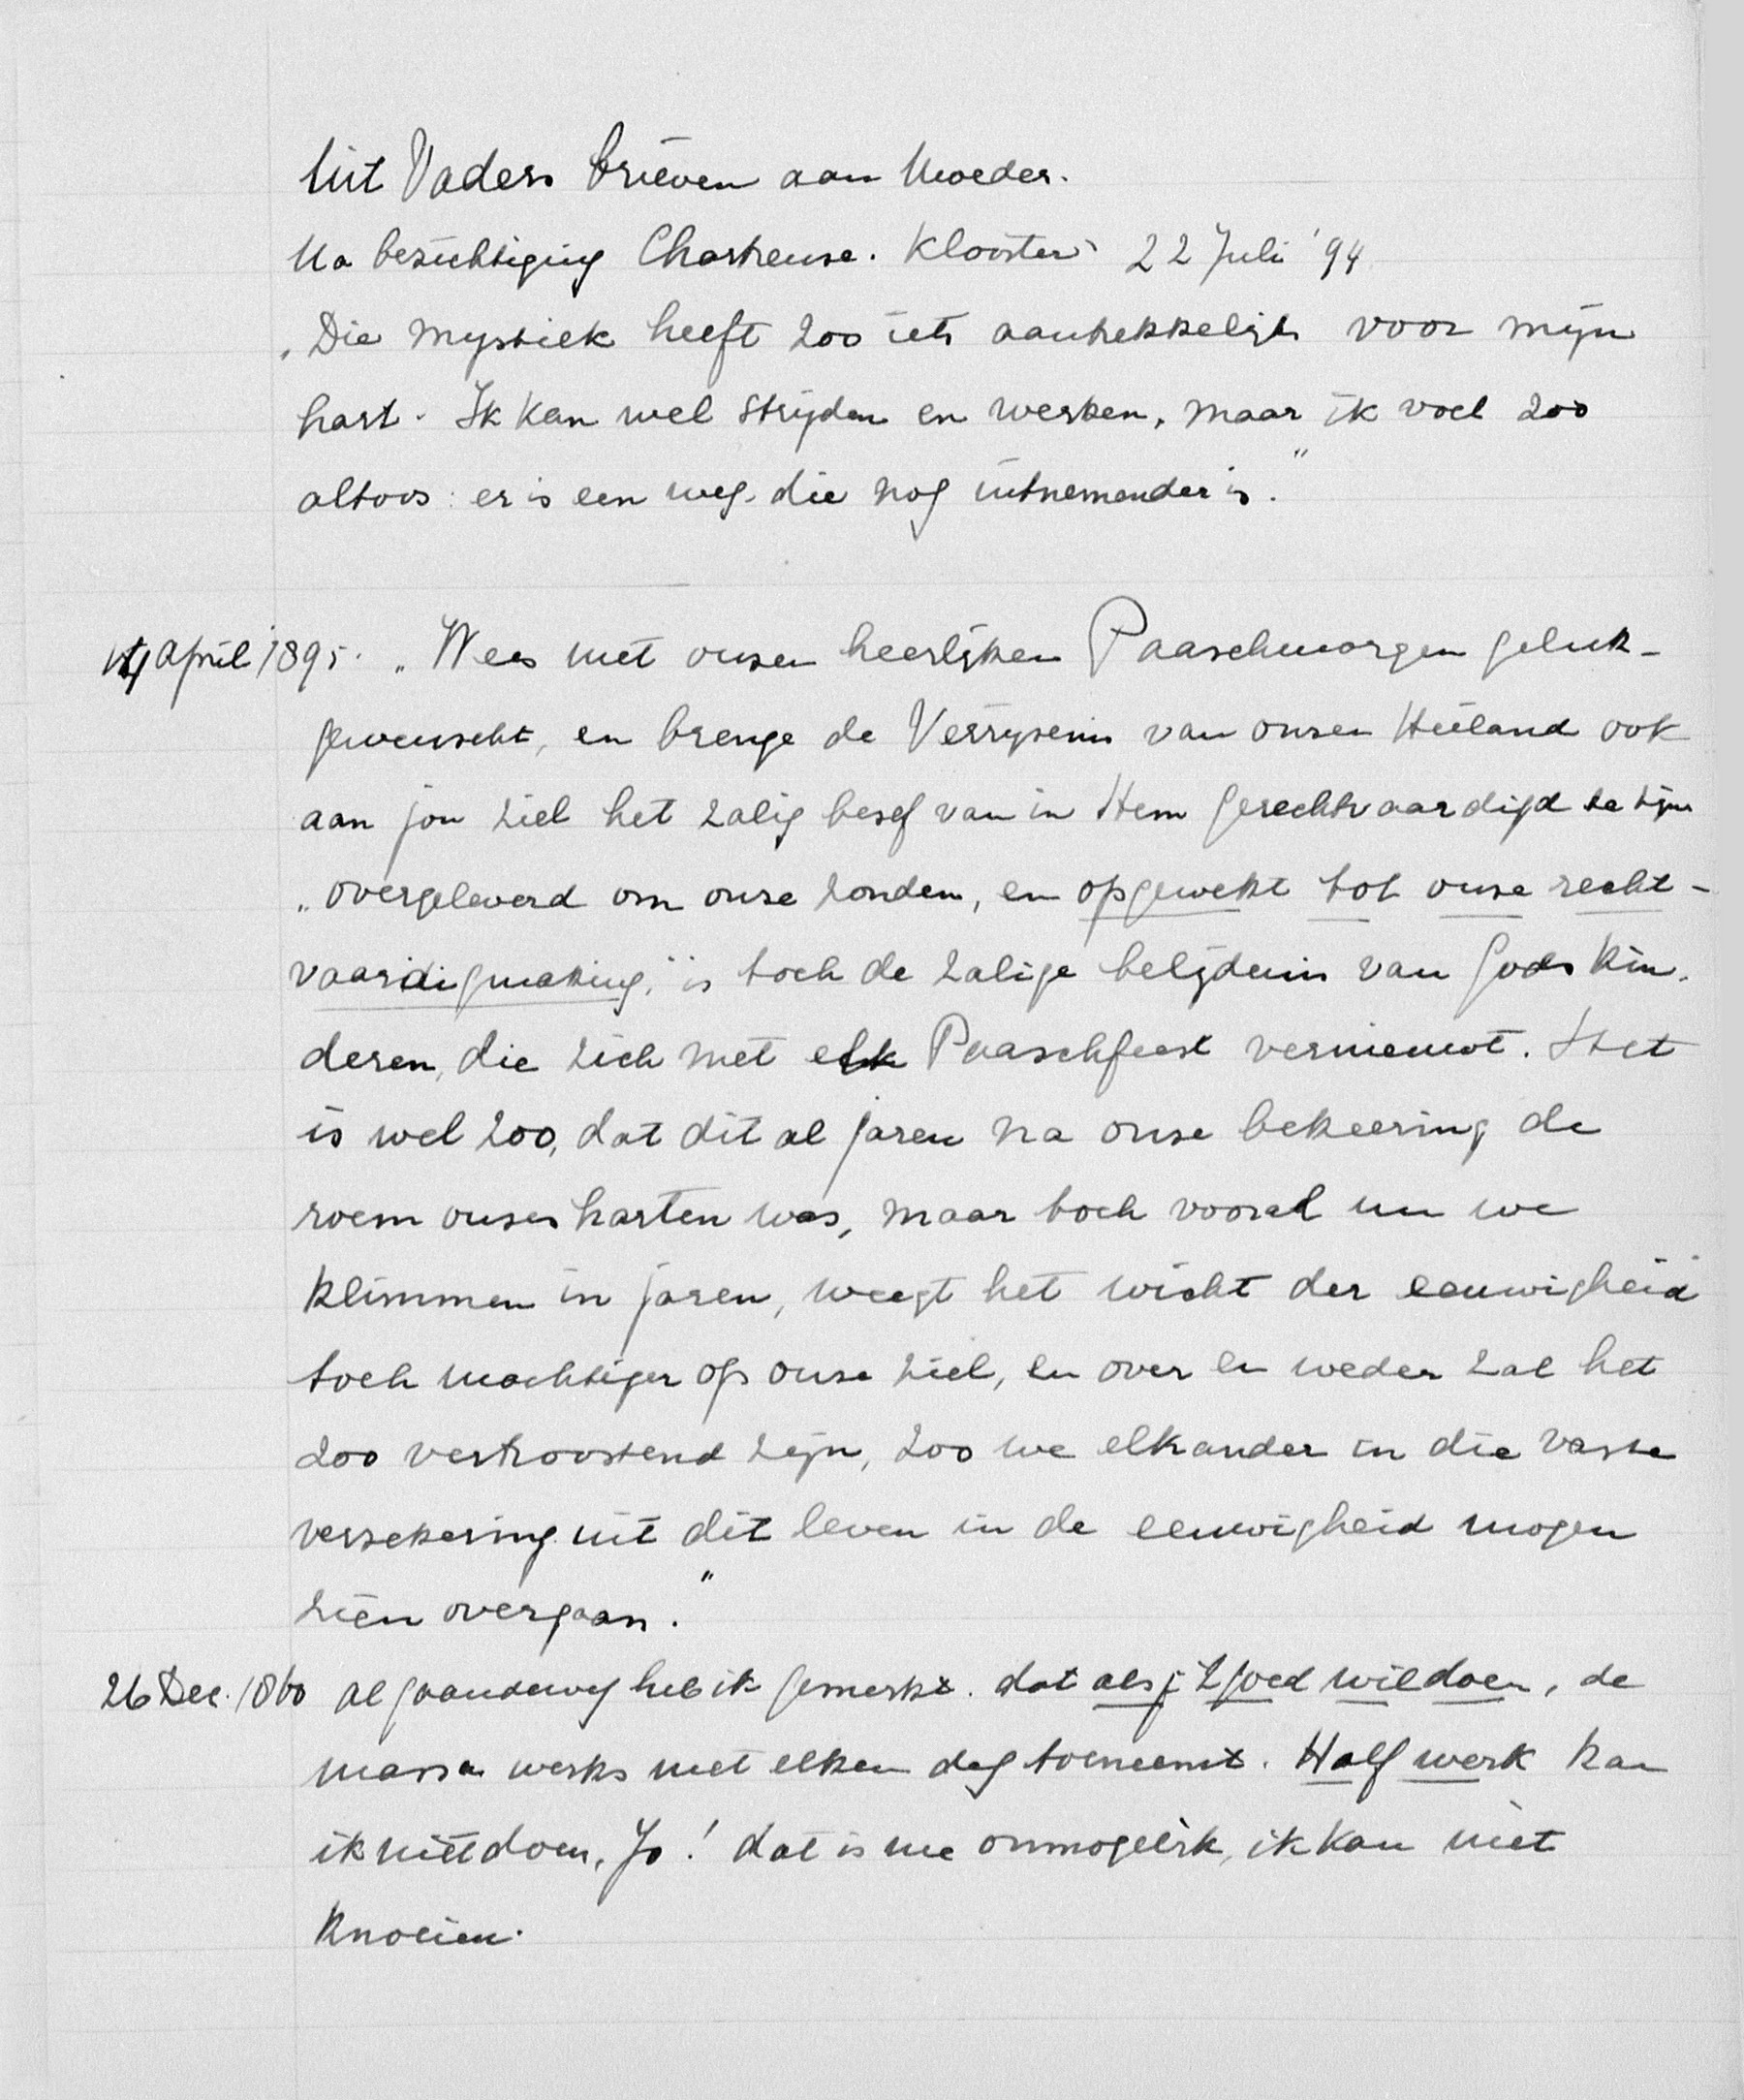 Uit Vaders brieven aan Moeder.
Na bezichtiging Chartreuse. Klooster 22 Juli '94
„Die mystiek heeft zoo iets aantrekkelijks voor mijn
hart. Ik kan wel strijden en werken, maar ik voel zoo
altoos: er is een weg, die nog uitnemender is."
14 April 1895. „Wees met onzen heerlijken Paaschmorgen geluk-
gewenscht, en brenge de Verrijzenis van onzen Heiland ook
aan jou ziel het zalig besef van in Hem gerechtvaardigd te zijn
„overgeleverd om onze zonden, en opgewekt tot onze recht-
vaardigmaking," is toch de zalige belijdenis van Gods kin-
deren, die zich met elk Paaschfeest vernieuwt. Het
is wel zoo, dat dit al jaren na onze bekeering de
roem onzes harten was, maar toch vooral nu we
klimmen in jaren, weegt het wicht der eeuwigheid
toch machtiger op onze ziel, en over en weder zal het
zoo vertroostend zijn, zoo we elkander in die vaste
verzekering uit dit leven in de eeuwigheid mogen
zien overgaan."
26 Dec. 1860 al gaandeweg heb ik gemerkt. dat als j' 't goed wil doen, de
massa werks met elken dag toeneemt. Half werk kan
ik niet doen, Jo! dat is me onmogelijk, ik kan niet
knoeien.